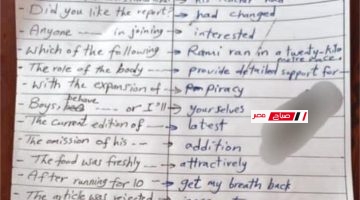 - Did you like the report? → had changed
- Anyone ---- in joining → interested
- Which of the following → Rami ran in a twenty-kilo metre race.
- The role of the body → provide detailed support for
- With the expansion of → piracy
Boys, behave ---- or I'll → yourselves
The current edition of → latest
The omission of his --- → addition
- The food was freshly --- → attractively
- After running for 10 → get my breath back
The article was rejected
صباح مصر